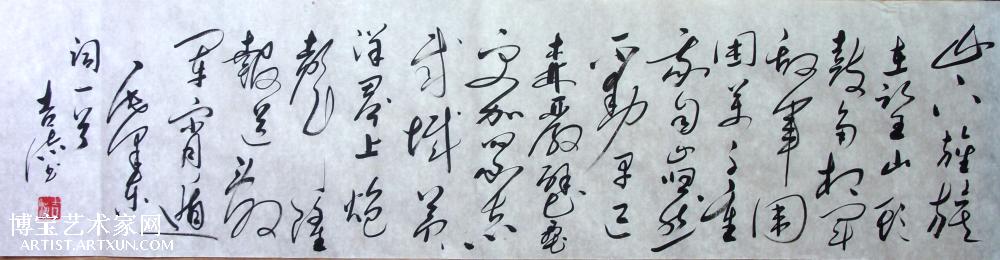 山下旌旗
在望山头
鼓角相闻
敌軍围
困萬千重
我自岿然
不動早已
森嚴壁垒
更加众志
成城黄
洋界上炮
声隆
報道敌
军宵遁
毛泽东
词一首
博宝艺术家网
ARTIST.ARTXUN.COM